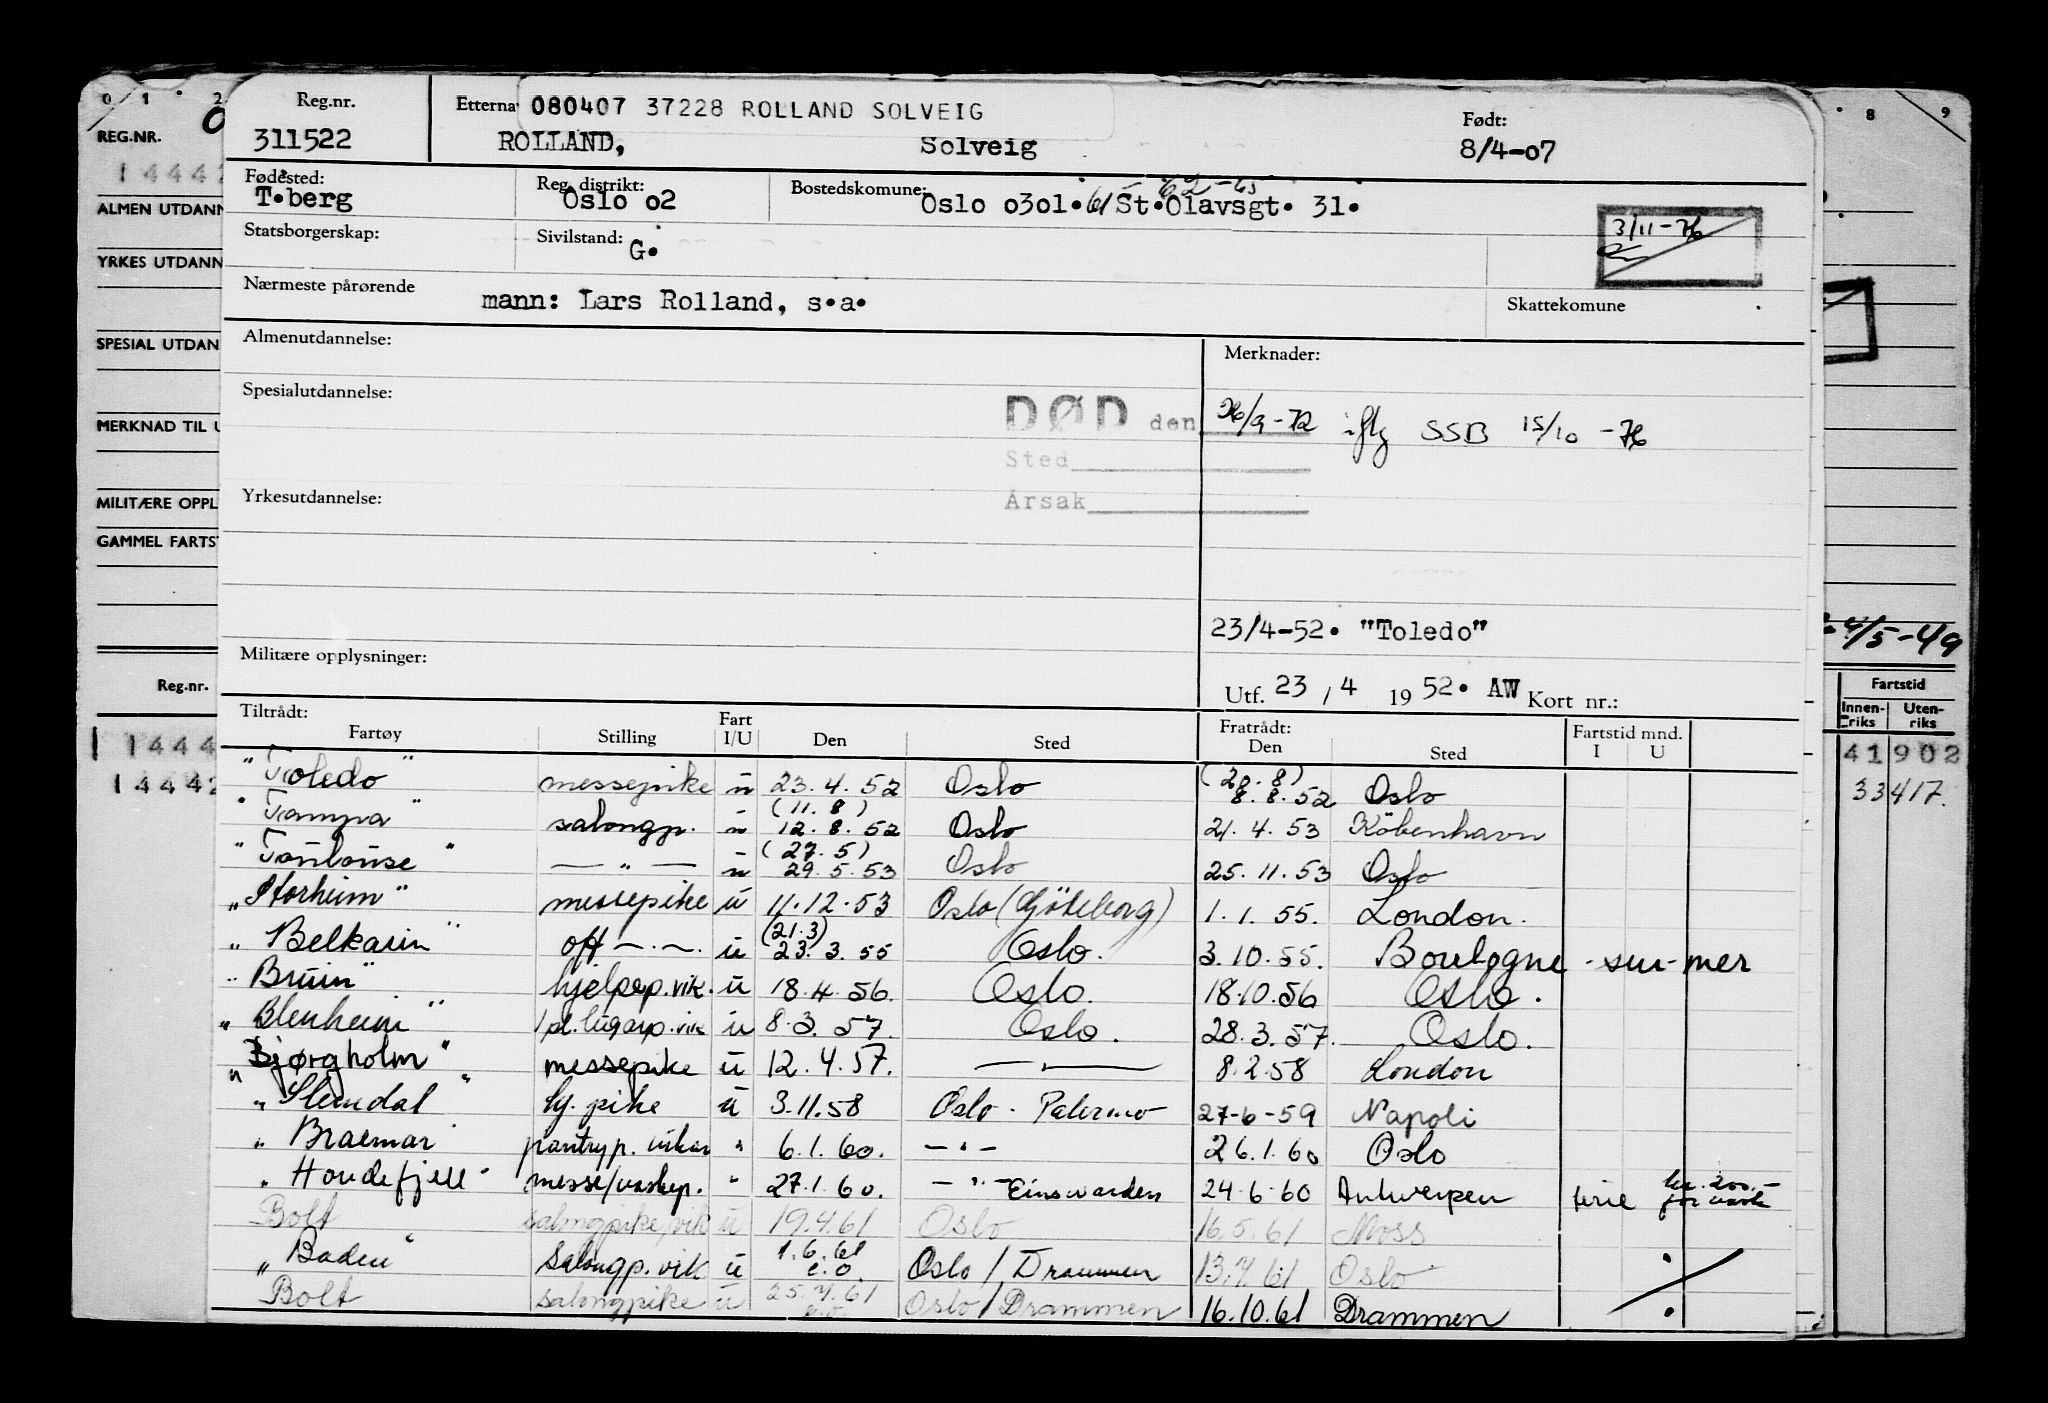 0 1 2
REG.NR.
14442
ALMEN UTDANN
YRKES UTDANN
SPESIAL UTDAN
MERKNAD TIL U
MILITÆRE OPPL
GAMMEL FARTST
Reg.nr.
1 1444
14442
Reg.nr. Etterna 080407 37228 ROLLAND SOLVEIG Født:
311522 ROLLAND, Solveig 8/4-07
Fødested: Reg. distrikt: Bostedskomune: 62-65
T.berg Oslo 02 Oslo 0301. 61 St.Olavsgt. 31.
Statsborgerskap: Sivilstand: G. 3/11-76
Nærmeste pårørende mann: Lars Rolland, s.a. Skattekomune
Almenutdannelse: Merknader:
Spesialutdannelse: DØD den 26/9-72 iflg SSB 15/10-76
Sted
Yrkesutdannelse: Årsak
23/4-52. "Toledo"
Militære opplysninger:
Utf. 23 / 4 1952. AW Kort nr.:
Tiltrådt: Fart Fratrådt: Fartstid mnd.
Fartøy Stilling I/U Den Sted Den Sted I U
"Toledo" messepike u 23.4.52 Oslo (20.8) 8.8.52 Oslo
"Tampa" salongp. u (11.8) 12.8.52 Oslo 21.4.53 Köbenhavn
"Toulouse" — " — u (27.5) 29.5.53 Oslo 25.11.53 Oslo
"Storheim" messepike u 11.12.53 Oslo (Göteborg) 1.1.55. London.
"Belkarin" off — . — . u (21.3) 23.3.55 Oslo. 3.10.55. Boulogne-sur-mer
"Bruin" hjelpep.vik. u 18.4.56. Oslo. 18.10.56 Oslo.
"Blenheim" 1pl.lugarp.vik u 8.3.57. Oslo. 28.3.57. Oslo.
"Bjørgholm" messepike u 12.4.57. — " — 8.2.58 London
"Slemdal" by. pike u 3.11.58 Oslo - Palermo 27-6-59 Napoli
"Braemar" pantryp. vikar " 6.1.60. — " — 26.1.60 Oslo
"Hondefjell" messe/vaskep. " 27.1.60. — " — Einswarden 24.6.60 Antwerpen ferie kr. 200.- for vask
Bolt salongpike/vik u 19.4.61 Oslo 16.5.61 Moss
"Baden" salongp.vik u 1.6.61 e.o. Oslo / Drammen 13.7.61 Oslo
Bolt salongpike u 25.7.61 e.o. Oslo / Drammen 16.10.61 Drammen
8 9
4/5-49
Fartstid
Innen-riks Uten-riks
41902
33417.